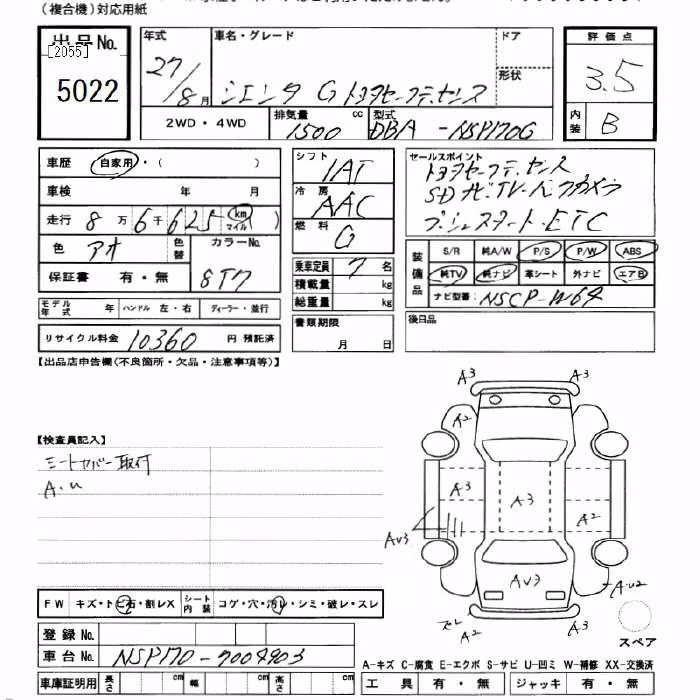 (複合機)対応用紙
出品No.
[2055]
5022
年式
27/8月
車名・グレード
シエンタ G トヨタセーフティセンス
ドア
形状
評価点
3.5
内装
B
2WD・4WD
排気量
1500 cc
型式
DBA-NSP170G
車歴 自家用・( )
車検 年 月
走行 8万6千625 km マイル )
色 アオ 色替
カラーNo.
8T7
保証書 有・無
シフト
IAT
冷房
AAC
燃料
G
乗車定員 7名
積載量 kg
総重量 kg
書類期限
月 日
セールスポイント
トヨタセーフティセンス
SDナビ.TV.バックカメラ
プッシュスタート.ETC
装備品
S/R 純A/W P/S P/W ABS
純TV 純ナビ 革シート 外ナビ エアB
ナビ型番: NSCP-W64
後日品
モデル年式 年 ハンドル 左・右 ディーラー・並行
リサイクル料金 10360 円 預託済
【出品店申告欄(不良箇所・欠品・注意事項等)】
【検査員記入】
シートカバー取付
A.U
A3
A3
A2
A3
A3
A2
AU3
AU3
A.U2
ズレ
A2
A3
スペア
FW キズ・トビ石・割レX
シート内装 コゲ・穴・汚レ・シミ・破レ・スレ
登録No.
車台No. NSP170-7004903
車庫証明用 長さ cm 幅 cm 高さ cm
A-キズ C-腐食 E-エクボ S-サビ U-凹ミ W-補修 XX-交換済
工具 有・無 ジャッキ 有・無